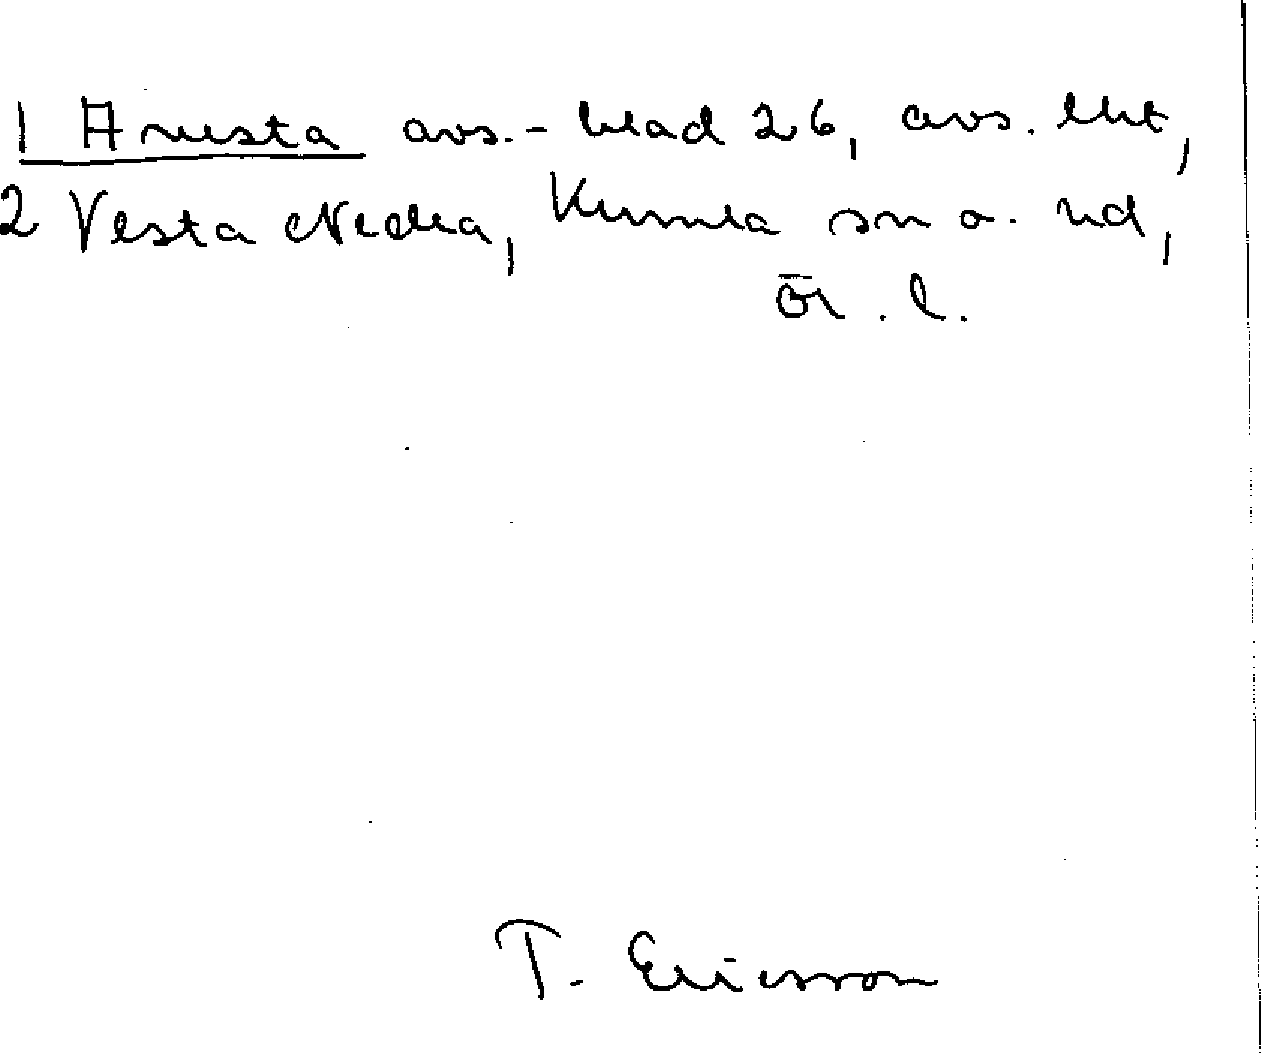 1 Avesta avs.-blad 26, avs. lht,
2 Vesta Nedra, Kumla sn o. hd,
Ör. l.
T. Ericsson